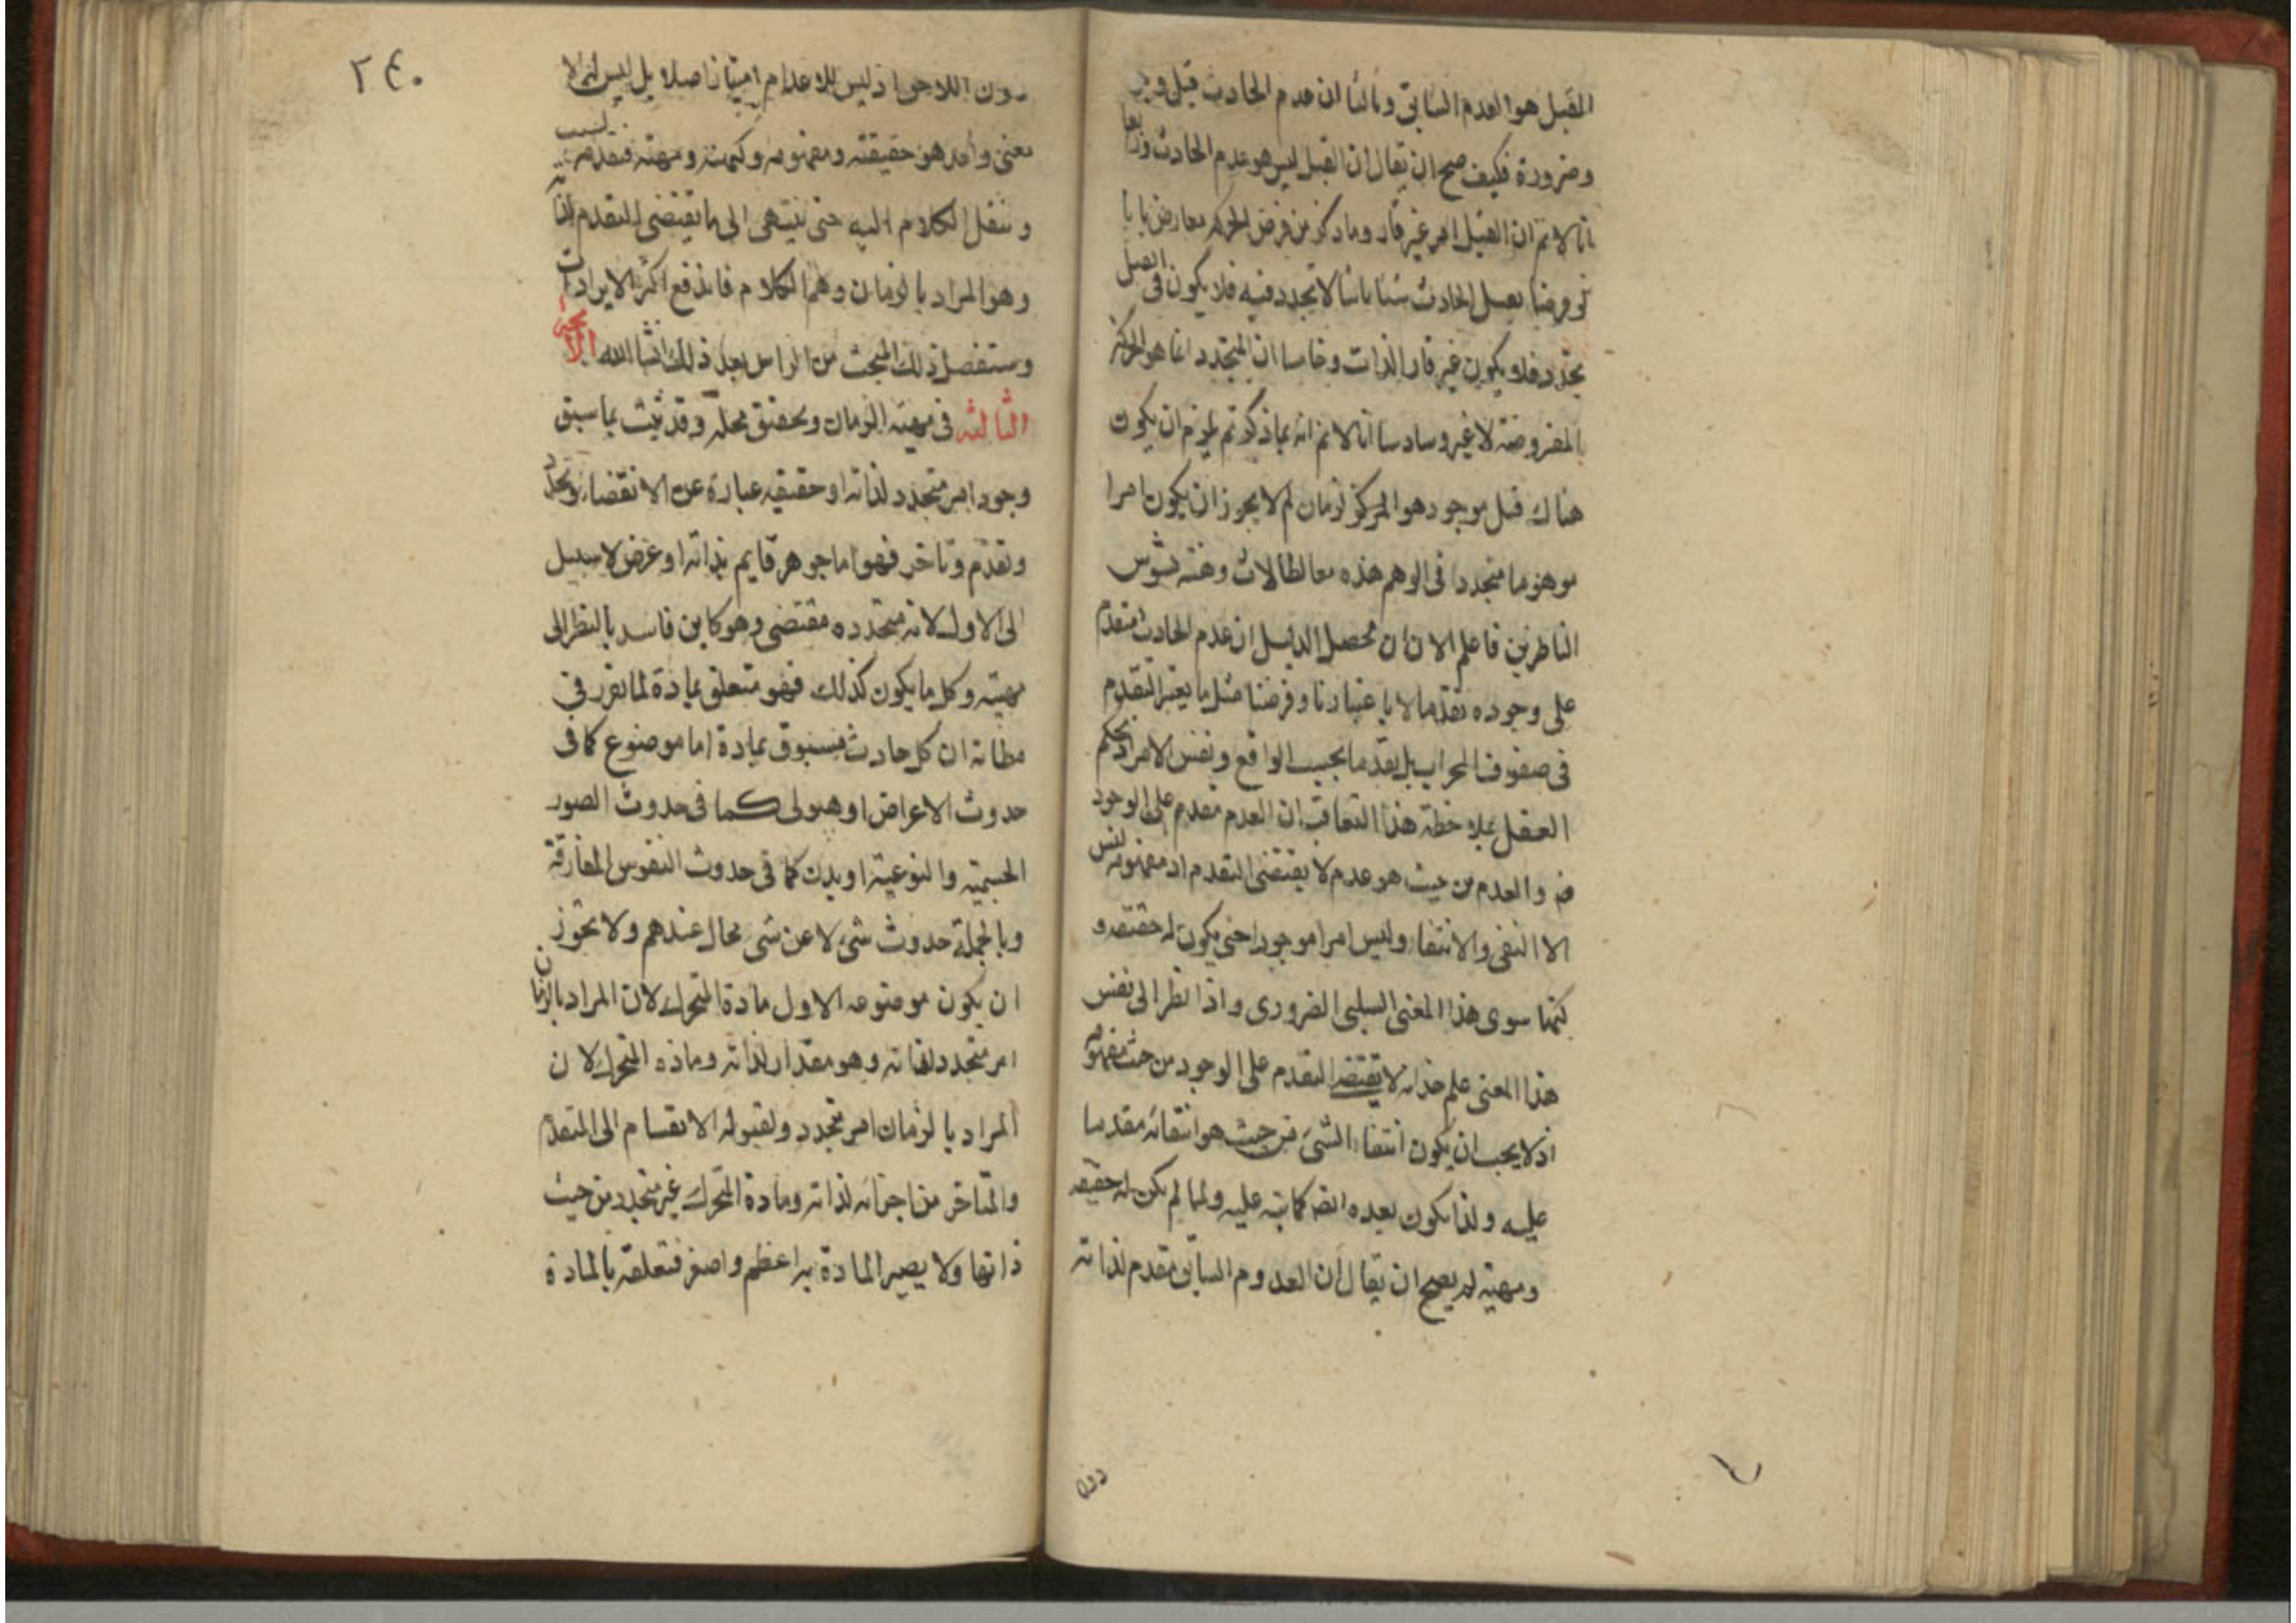 القبل هو العدم السابق وثالثا ان عدم الحادث قبل
وضرورة فكيف صح ان يقال ان القبل ليس هو عدم الحادث
انا لانم ان القبل امر غير قار وما ذكر من فرض الحركة معارض بانا
لو فرضنا قبل الحادث شيئا ثابتا لا تجدد فيه فلا يكون فى القبل
تجدد فلا يكون غير قار الذات وخامسا ان المتجدد انما هو الحركة
المفروضة لا غير وسادسا انا لانم انه بما ذكرتم يلزم ان يكون
هناك قبل موجود هو الزمان لم لا يجوز ان يكون امرا
موهوما متجددا فى الوهم هذه مغالطات تشوش
الناظرين فاعلم الان ان محصل الدليل ان عدم الحادث متقدم
على وجوده تقدما لا باعتبارنا وفرضنا مثل ما يعتبر التقدم
فى صفوف المحراب بل تقدما بحسب الواقع ونفس الامر اذ يحكم
العقل بملاحظة هذا التعاقب ان العدم مقدم على الوجود
والعدم من حيث هو عدم لا يقتضى التقدم اذ مفهومه ليس
الا النفى والانتفاء وليس امرا موجودا حتى يكون له حقيقة و
كنها سوى هذا المعنى السلبى الضرورى واذا نظر الى نفس
هذا المعنى علم لا يقتضى التقدم على الوجود من حيث مفهومه
اذ لا يجب ان يكون انتفاء الشئ من حيث هو انتفائه مقدما
عليه ولذا يكون بعده ايضا كما نبه عليه ولما لم يكن له حقيقة
ومهية لم يصح ان يقال ان العدوم السابق مقدم لذاته
دون
٢٤٠
دون اللاحق اذ ليس للاعدام امتياز اصلا بل ليس لها الا
معنى واحد هو حقيقته ومفهومه وكنهه ومهيته فتقدمه بسبب
وننقل الكلام اليه حتى ينتهى الى ما يقتضى التقدم لذاته
وهو المراد بالزمان وهم الكلام فاندفع اكثر الايرادات
وستفصل ذلك المبحث من الراس بعد ذلك انشا الله البحث
الثالثه فى مهية الزمان وتحقيق محله وقد ثبت بما سبق
وجود امر متجدد لذاته او حقيقه عبارة عن الانقضاء وتجدد
وتقدم وتاخر فهو اما جوهر قايم بذاته او عرض لا سبيل
الى الاول لانه متجدده مقتضى وهو كاين فاسد بالنظر الى
مهيته وكل ما يكون كذلك فهو متعلق بمادة لما تقرر فى
مظانه ان كل حادث مسبوق بمادة اما موضوع كما فى
حدوث الاعراض او هيولى كما فى حدوث الصور
الجسمية والنوعية او بدن كما فى حدوث النفوس المفارقة
وبالجملة حدوث شئ لا عن شئ محال عندهم ولا يجوز
ان يكون موضوعه الاول مادة المتحرك لان المراد بالزمان
امر متجدد لذاته وهو مقدار لذاته وماده المتحرك لان
المراد بالزمان امر متجدد ولقبوله الانقسام الى المتقدم
والمتاخر من اجزائه لذاته ومادة المتحرك غير متجدد من حيث
ذاتها ولا يصير المادة به اعظم واصغر فتعلقه بالمادة